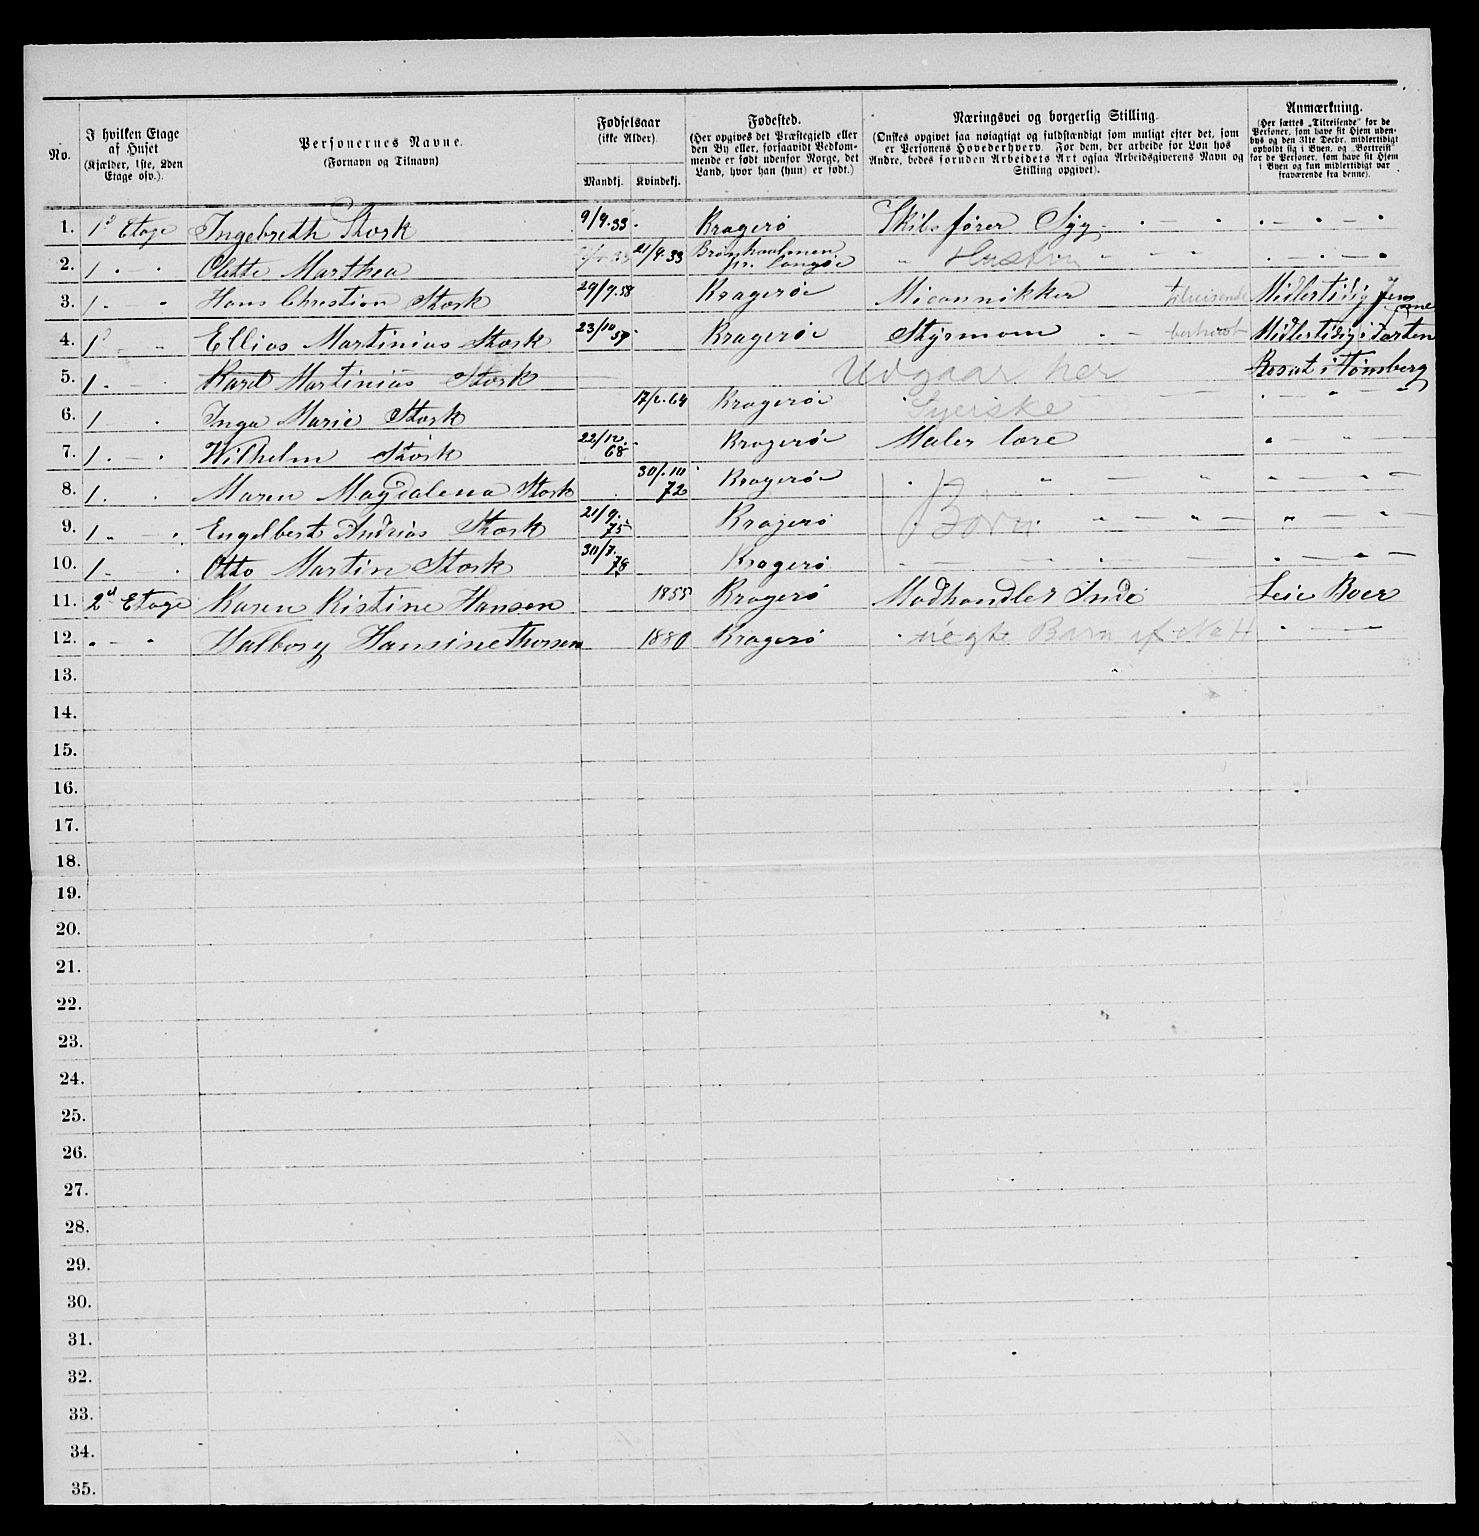 No.
I hvilken Etage af Huset
(Kjælder, 1ste, 2den Etage osv.).
Personernes Navne.
(Fornavn og Tilnavn)
Fødselsaar
(ikke Alder).
Mandkj. Kvindekj.
Fødested.
(Her opgives det Præstegjeld eller
den By eller, forsaavidt Vedkom-
mende er født udenfor Norge, det
Land, hvor han (hun) er født.)
Næringsvei og borgerlig Stilling.
(Ønskes opgivet saa nøiagtigt og fuldstændigt som muligt efter det, som
er Personens Hovederhverv. For dem, der arbeide for Løn hos
Andre, bedes foruden Arbeidets Art ogsaa Arbeidsgiverens Navn og
Stilling opgivet).
Anmærkning.
(Her sættes „Tilreisende" for de
Personer, som have sit Hjem uden-
bys og den 31te Decbr. midlertidigt
opholdt sig i Byen, og „Bortreist"
for de Personer, som have sit Hjem
i Byen og kun midlertidigt var
fraværende fra denne).
1. 1ª Etage Ingebreth Stork 9/9.33 Kragerö Skibsfører Syg
2. 1 Olette Marthea 21/9.33 langøe Hustru
3. 1 Hans Christian Stork 29/9.58 Kragerøe Micannikker tilreisende Midlertidig
4. 1ª Ellias Martinius Stork 23/10 59 Kragerøe Styrmam bortreist Midlertidig i Farten
5. 1 Karl Martinias Stork Udgaar her Bosat i Tønsberg
6. 1 Inga Marie Stork 64 Kragerøe Syerske
7. 1 Wilhelm Stork 22/12 68 Kragerøe Maler lære
8. 1 Maren Magdalena Stork 30/10 72 Kragerøe
9. 1 Engelbert Andrias Stork 21/9. 75 Kragerö Børn
10. 1 Otto Martin Stork 30/7. 78 Kragerö
11. 2ª Etage Karen Kristine Hansen 1855 Kragerö Madhandler Inde Leie Boer
12. Halborg Hansine Thorsen 1880 Kragerö uægte Barn af No 11
13.
14.
15.
16.
17.
18.
19.
20.
21.
22.
23.
24.
25.
26.
27.
28.
29.
30.
31.
32.
33.
34.
35.